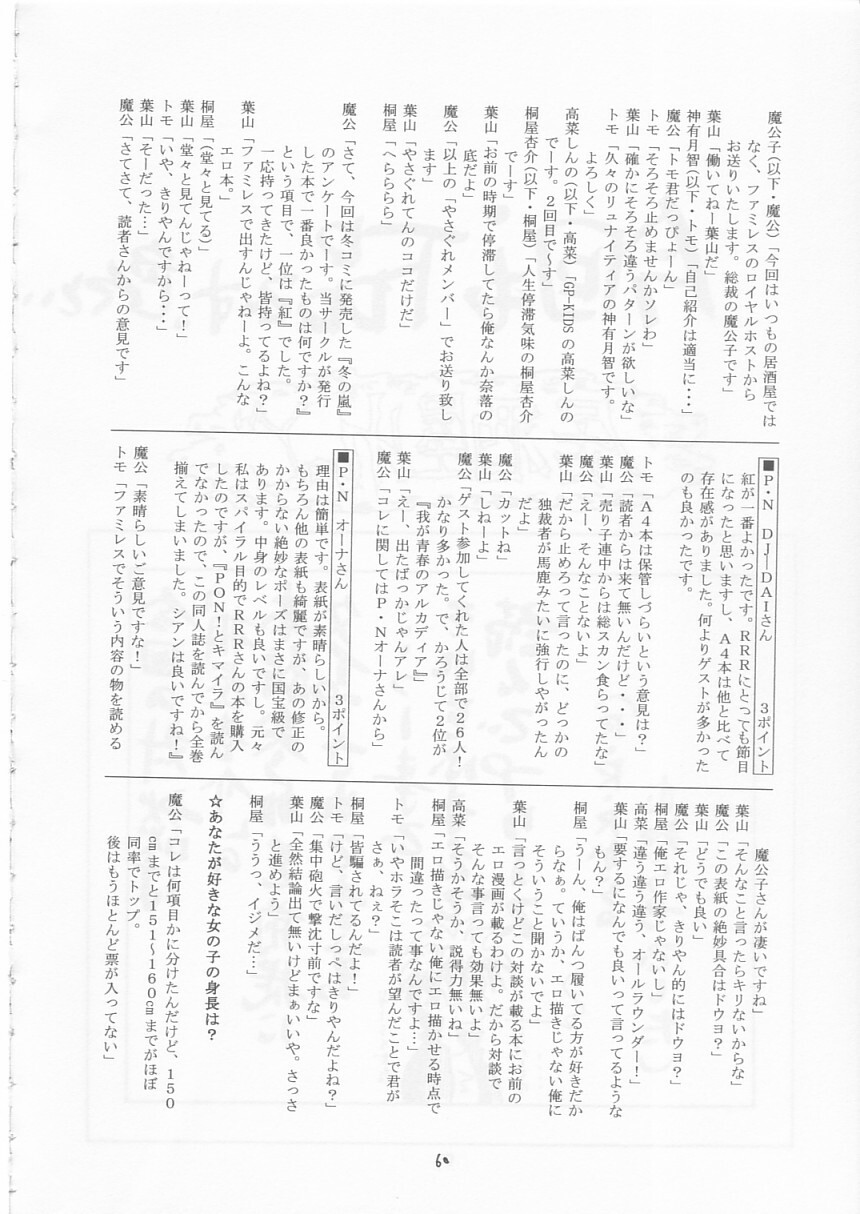 魔公子(以下・魔公)「今回はいつもの居酒屋では
なく、ファミレスのロイヤルホストから
お送りいたします。総裁の魔公子です」
葉山「働いてねー葉山だ」
神有月智(以下・トモ)「自己紹介は適当に・・・」
魔公「トモ君だっぴょーん」
トモ「そろそろ止めませんかソレわ」
葉山「確かにそろそろ違うパターンが欲しいな」
トモ「久々のリュナイティアの神有月智です。
よろしく」
高菜しんの(以下・高菜)「GP-KIDSの高菜しんの
でーす。２回目で〜す」
桐屋杏介(以下・桐屋)「人生停滞気味の桐屋杏介
でーす」
葉山「お前の時期で停滞してたら俺なんか奈落の
底だよ」
魔公「以上の「やさぐれメンバー」でお送り致し
ます」
葉山「やさぐれてんのココだけだ」
桐屋「へらららら」
魔公「さて、今回は冬コミに発売した『冬の嵐』
のアンケートでーす。当サークルが発行
した本で一番良かったものは何ですか？』
という項目で、一位は『紅』でした。
一応持ってきたけど、皆持ってるよね？」
葉山「ファミレスで出すんじゃねーよ。こんな
エロ本。」
桐屋「(堂々と見てる)」
葉山「堂々と見てんじゃねーって！」
トモ「いや、きりやんですから・・・」
葉山「そーだった…」
魔公「さてさて、読者さんからの意見です」
■Ｐ・Ｎ　ＤＪ―ＤＡＩさん　　３ポイント
紅が一番よかったです。ＲＲＲにとっても節目
になったと思いますし、Ａ４本は他と比べて
存在感がありました。何よりゲストが多かった
のも良かったです。
トモ「Ａ４本は保管しづらいという意見は？」
魔公「読者からは来て無いんだけど・・・」
葉山「売り子連中からは総スカン食らってたな」
魔公「えー、そんなことないよ」
葉山「だから止めろって言ったのに、どっかの
独裁者が馬鹿みたいに強行しやがったん
だよ」
魔公「カットね」
葉山「しねーよ」
魔公「ゲスト参加してくれた人は全部で２６人！
かなり多かった。で、かろうじて２位が
『我が青春のアルカディア』」
葉山「えー、出たばっかじゃんアレ」
魔公「コレに関してはＰ・Ｎオーナさんから」
■Ｐ・Ｎ　オーナさん　　３ポイント
理由は簡単です。表紙が素晴らしいから。
もちろん他の表紙も綺麗ですが、あの修正の
かからない絶妙なポーズはまさに国宝級で
あります。中身のレベルも良いですし。元々
私はスパイラル目的でＲＲＲさんの本を購入
したのですが、『ＰＯＮ！とキマイラ』を読ん
でなかったので、この同人誌を読んでから全巻
揃えてしまいました。シアンは良いですね！』
魔公「素晴らしいご意見ですな！」
トモ「ファミレスでそういう内容の物を読める
魔公子さんが凄いですね」
葉山「そんなこと言ったらキリないからな」
魔公「この表紙の絶妙具合はドウヨ？」
葉山「どうでも良い」
魔公「それじゃ、きりやん的にはドウヨ？」
桐屋「俺エロ作家じゃないし」
高菜「違う違う違う、オールラウンダー！」
葉山「要するになんでも良いって言ってるような
もん？」
桐屋「うーん、俺はぱんつ履いてる方が好きだか
らなぁ。ていうか、エロ描きじゃない俺に
そういうこと聞かないでよ」
葉山「言っとくけどこの対談が載る本にお前の
エロ漫画が載るわけよ。だから対談で
そんな事言っても効果無いよ」
高菜「そうかそうか、説得力無いね」
桐屋「エロ描きじゃない俺にエロ描かせる時点で
間違ったって事なんですよ…」
トモ「いやホラそこは読者が望んだことで君が
さぁ、ねぇ？」
桐屋「皆騙されてるんだよ！」
トモ「けど、言いだしっぺはきりやんだよね？」
魔公「集中砲火で撃沈寸前ですな」
葉山「全然結論出て無いけどまぁいいや。さっさ
と進めよう」
桐屋「ううっ、イジメだ…」
☆あなたが好きな女の子の身長は？
魔公「コレは何項目かに分けたんだけど、１５０
㎝までと１５１〜１６０㎝までがほぼ
同率でトップ。
後はもうほとんど票が入ってない」
60